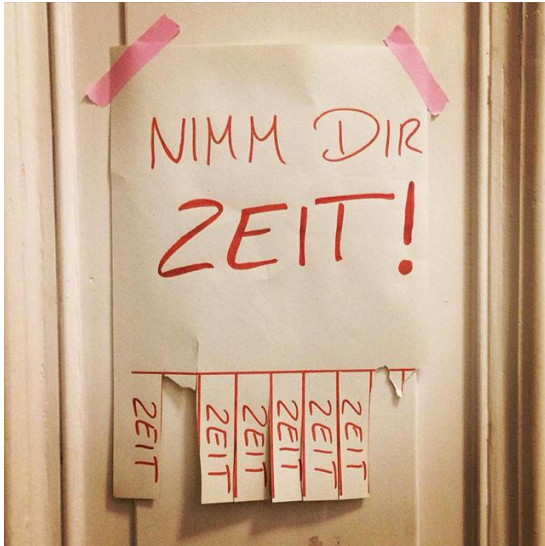 NIMM DIR
ZEIT!
ZEIT
ZEIT
ZEIT
ZEIT
ZEIT
ZEIT